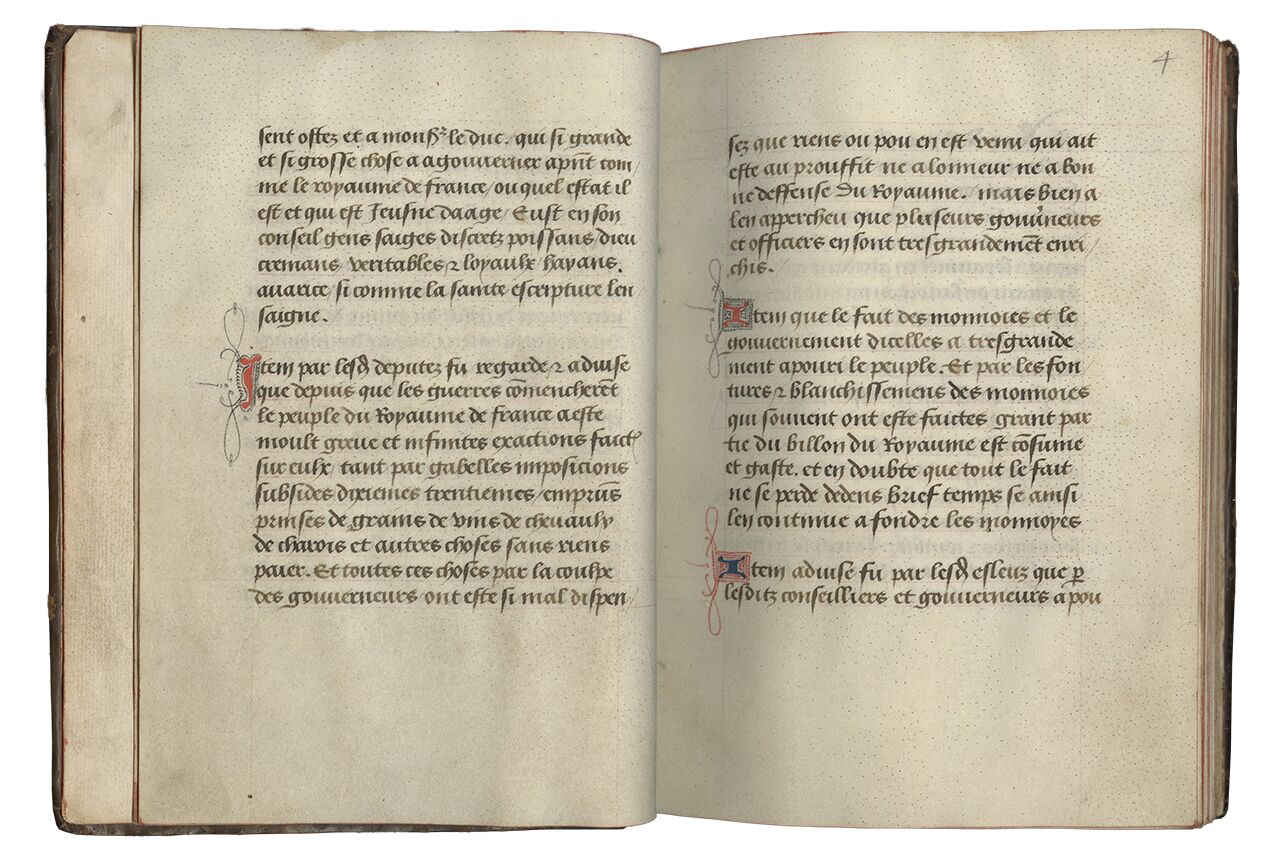 sent ostez et a monsr le duc. qui si grande
et si grosse chose a agouverner apñt com/
me le royaume de france/ ou quel estat il
est et qui est Jeusne daage/ Eust en son
conseil gens saiges discretz poissans/ dieu
cremans/ veritables ⁊ loyaulx hayans.
avarice/ si comme la sainte escripture len/
saigne.
Item par lesd deputez fu regarde ⁊ advise
que depuis que les guerres cõmencherẽt
le peuple du Royaume de france a este
moult greue et infinites exactions faict
sur eulx tant par gabelles imposicions
subsides dixiemes trentiemes/ empruñs
prinses de grains de vins de chevaulx
de charois et autres choses sans riens
paier. Et toutes ces choses par la coulpe
des gouverneurs ont este si mal dispen/
4
sez que riens ou pou en est venu qui ait
este au prouffit ne a lonneur ne a bon
ne deffense du Royaume. mais bien a
len appercheu que pluseurs gouv̉neurs
et officiers en sont tresgrandemẽt enri/
chis.
Item que le fait des monnoies et le
gouvernement dicelles a tresgrande
ment apouri le peuple. Et par les fon
tures ⁊ blanchissemens des monnoies
qui souvent ont este faictes grant par
tie du billon du Royaume est cõsume
et gaste. et en doubte que tout le fait
ne se perde dedens brief temps se ainsi
len continue a fondre les monnoyes
Item advise fu par lesd esleuz que ꝑ
lesditz conseilliers et gouverneurs a pou